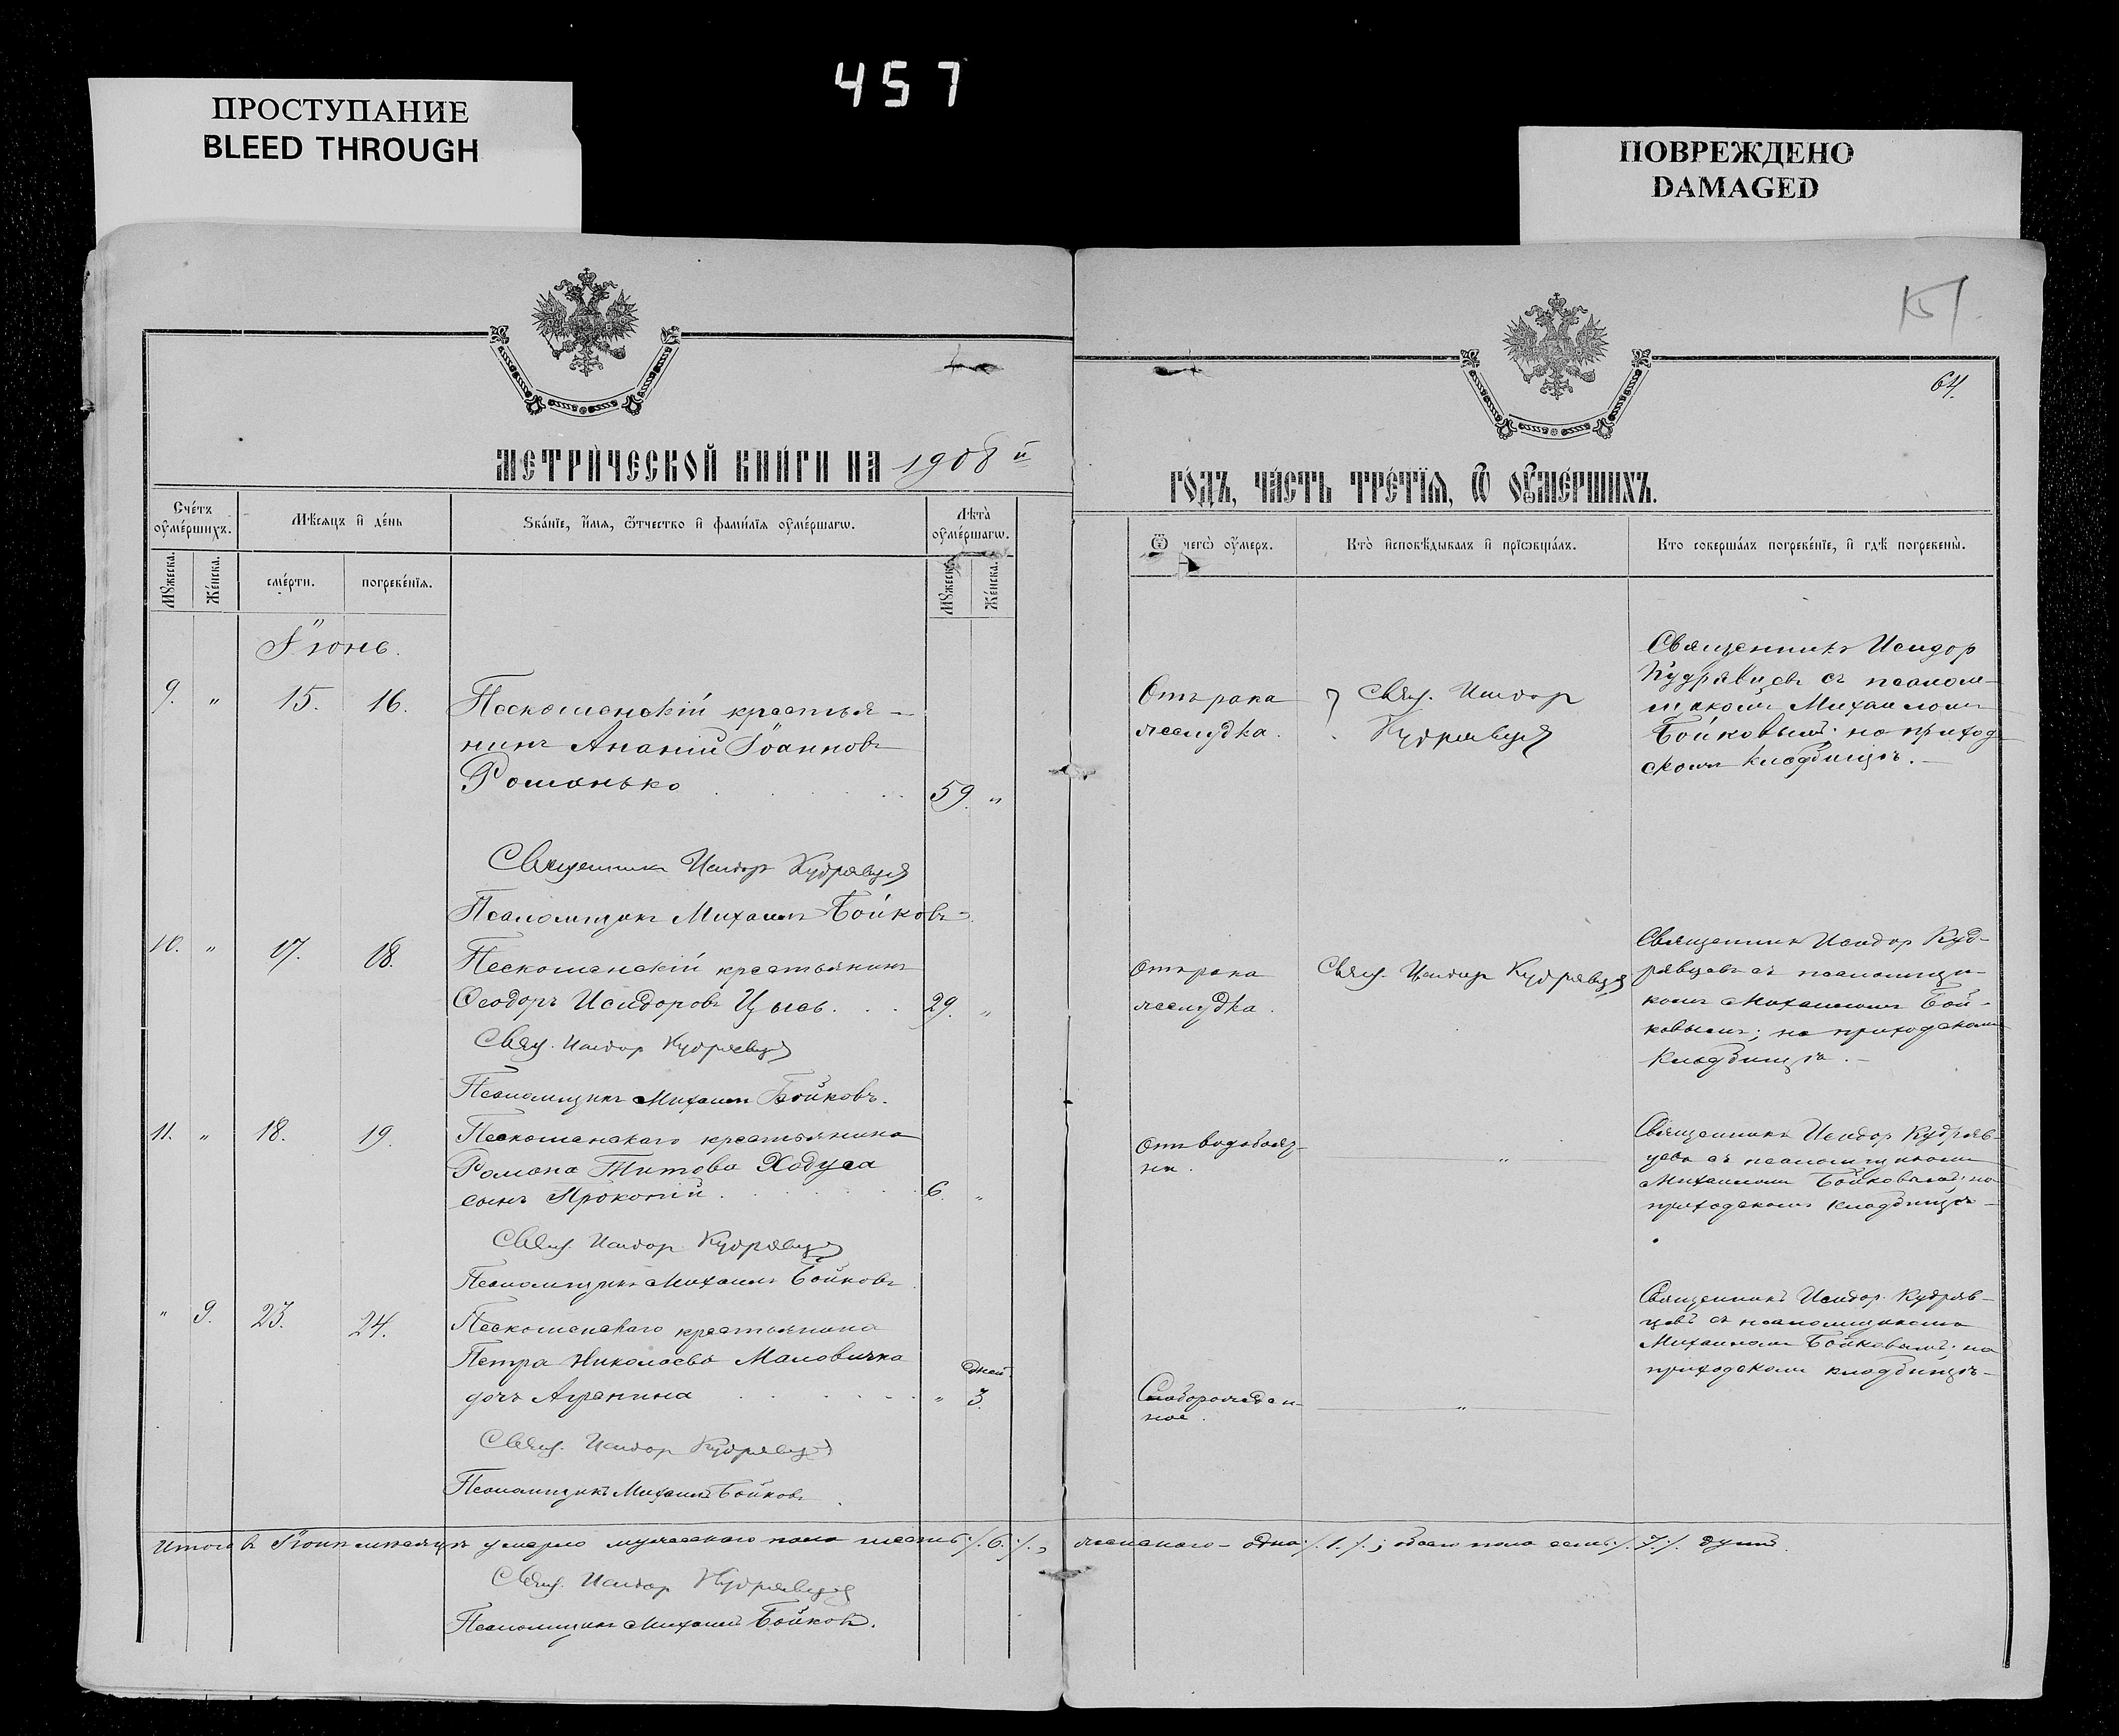 457
ПРОСТУПАНИЕ
BLEED THROUGH
ПОВРЕЖДЕНО
DAMAGED
64.
МЕТРИ́ЧЕСКОЙ КНИ́ГИ НА 1908й
ГО́ДЪ, ЧА́СТЬ ТРЕ́ТЇѦ, Ѡ ОУ҆МЕ́РШИХЪ.
Сче́тъ оу҆ме́ршихъ.
Мѣ́сѧцъ и҆ де́нь
Ѕва́нїе, и҆́мѧ, ѻ҆́тчество и҆ фами́лїѧ оу҆ме́ршагѡ.
Лѣта̀ оу҆ме́ршагѡ.
Ѿ чегѡ̀ оу҆́меръ.
Кто̀ и҆сповѣ́дывалъ и҆ прїѡбща́лъ.
Кто соверша́лъ погребе́нїе, и҆ гдѣ̀ погребены̀.
Мꙋ́жеска.
Же́нска.
сме́рти.
погребе́нїѧ.
Мꙋ́жеска.
Же́нска.
Іюнь.
9. " 15. 16. Пескошанскій крестья-
нинъ Ананій Іоанновъ
Романько 59. "
Отъ рака
желудка.
Свящ. Исидор
Кудрявцев
Священникъ Исидор
Кудрявцевъ съ псалом-
щикомъ Михаиломъ
Бойковымъ; на приход-
скомъ кладбищѣ.-
Священникъ Исидоръ Кудрявцев
Псаломщикъ Михаилъ Бойковъ
10. " 17. 18. Пескошанскій крестьянинъ
Ѳеодоръ Исидоровъ Цысь. 29. "
Отъ рака
желудка.
Свящ. Исидор Кудрявцев
Священник Исидор Куд-
рявцевъ съ псаломщи-
комъ Михаиломъ Бой-
ковымъ; на приходскомъ
кладбищѣ.-
Свящ. Исидор Кудрявцев
Псаломщикъ Михаилъ Бойковъ.
11. " 18. 19. Пескошанскаго крестьянина
Романа Титова Ходуса
сынъ Прокопій 6. "
Отъ водобояз-
ни.
"
Священникъ Исидор Кудряв-
цевъ съ псаломщикомъ
Михаиломъ Бойковымъ; на
приходскомъ кладбищѣ-
Свящ. Исидор Кудрявцев
Псаломщикъ Михаилъ Бойковъ
" 9. 23. 24. Пескошанскаго крестьянина
Петра Николаева Маловичка
дней
дочь " 3.
Слаборожден-
ное.
"
Священникъ Исидор Кудряв-
цевъ съ псаломщикомъ
Михаиломъ Бойковымъ; на
приходскомъ кладбищѣ-
Свящ. Исидор Кудрявцев
Псаломщикъ Михаилъ Бойковъ
Итого въ Іюнѣ мѣсяцѣ умерло мужескаго пола шесть /.6./., женскаго - одна /.1./.; обоего пола семь /.7./. душъ.
Свящ. Исидор Кудрявцев
Псаломщикъ Михаилъ Бойковъ.